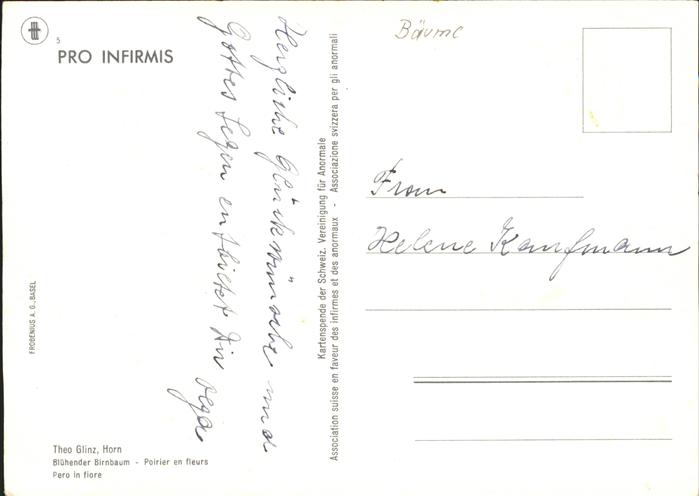 5
PRO INFIRMIS
Herzliche Glückwünsche und
Gottes Segen entbietet Dir
Olga
FROBENIUS A. G., BASEL
Theo Glinz, Horn
Blühender Birnbaum - Poirier en fleurs
Pero in fiore
Kartenspende der Schweiz. Vereinigung für Anormale
Association suisse en faveur des infirmes et des anormaux - Associazione svizzera per gli anormali
Bäume
Frau
Helene Kaufmann